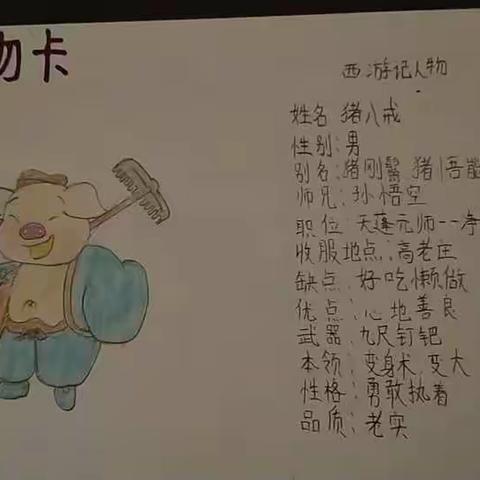 物卡
西游记人物
姓名 猪八戒
性别:男
别名:猪刚鬣 猪悟能
师兄:孙悟空
职位:天蓬元师--净
收服地点:高老庄
缺点:好吃懒做
优点:心地善良
武器:九尺钉钯
本领:变身术,变大
性格:勇敢执着
品质:老实